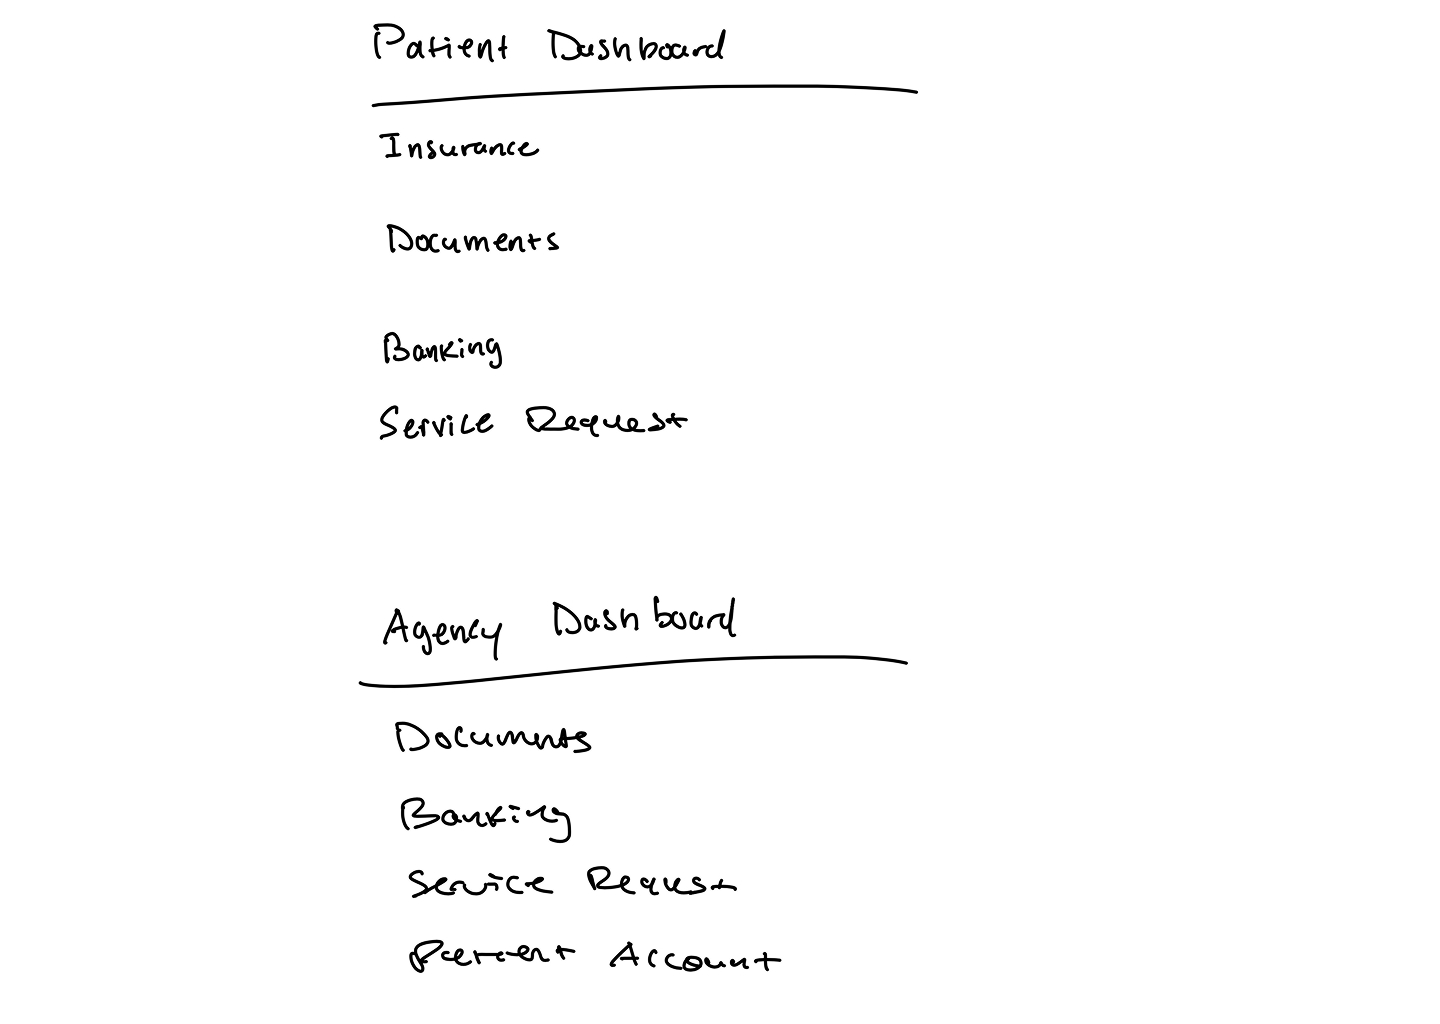 Patient Dashboard
Insurance
Documents
Banking
Service Request
Agency Dashboard
Documents
Banking
Service Request
Patient Account